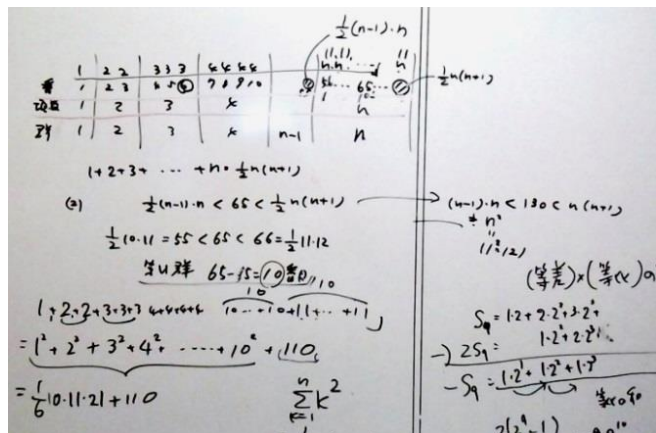 ½(n-1)・n
1 | 2 2 | 3 3 3 | 4 4 4 4
1 | 2 3 | 4 5 6 | 7 8 9 10
½n(n+1)
項数 1 2 3 4 n
群 1 2 3 4 n-1 n
1+2+3+ ⋯ +n = ½n(n+1)
(2) ½(n-1)・n < 65 < ½n(n+1)
½10・11 = 55 < 65 < 66 = ½11・12
第11群 65-55=10番目
1+2+2+3+3+3 4+4+4+4 10⋯+10+11+⋯+11
10 10
= 1²+2²+3²+4²+⋯⋯+10²+110
= 1/6 10・11・21+110
n
Σ k²
k=1
(n-1)・n < 130 < n(n+1)
≒ n²
(等差)×(等比)
S₉ = 1・2+2・2²+3・2³+
-) 2S₉ = 1・2²+2・2³+
-S₉ = 1・2¹+1・2²+1・2³
2(2⁹-1)